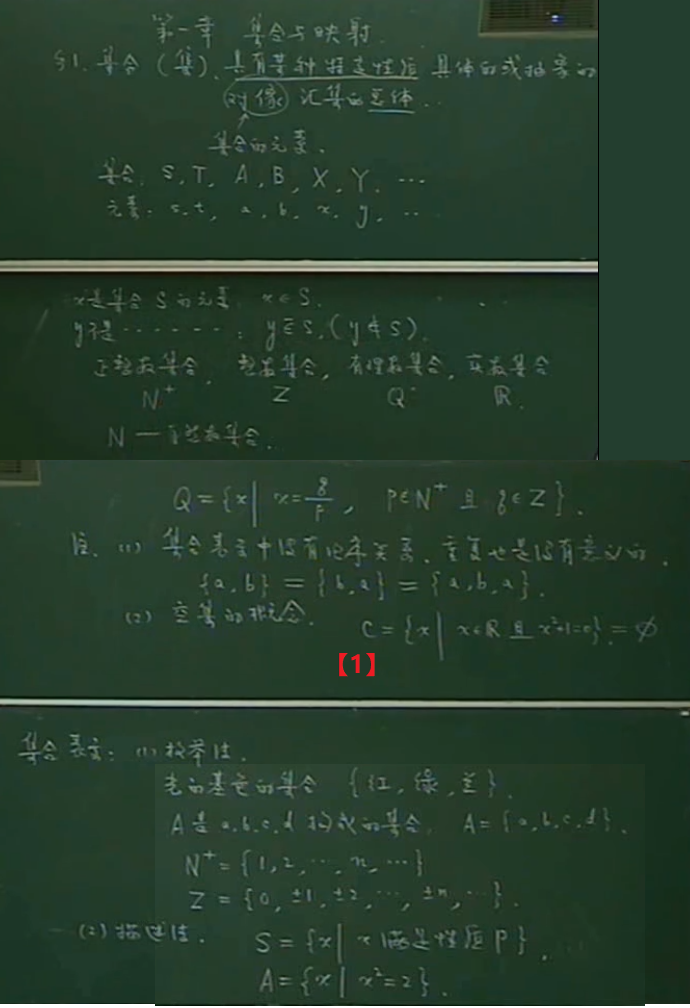 第一章 集合与映射.
§1. 集合（集）. 具有某种特定性质 具体的或抽象的
对像 汇集的总体..
集合的元素.
集合. S, T, A, B, X, Y, ...
元素. s, t, a, b, x, y, ..
x是集合S的元素: x∈S.
y不是········: y∈̄S, (y∉S).
正整数集合, 整数集合, 有理数集合, 实数集合
N⁺ Z Q R.
N — 自然数集合.
Q={x| x=q/p, p∈N⁺ 且 q∈Z}.
注. (1) 集合表示中没有次序关系. 重复也是没有意义的.
{a,b}={b,a}={a,b,a}.
(2) 空集的概念. C={x| x∈R 且 x²+1=0}.=∅
【1】
集合表示: (1) 枚举法.
光的基色的集合 {红, 绿, 兰}.
A是a,b,c,d 构成的集合. A={a,b,c,d}.
N⁺={1,2,...,n,...}
Z={0,±1,±2,...,±n,...}.
(2) 描述法. S={x| x满足性质P}.
A={x| x²=2}.